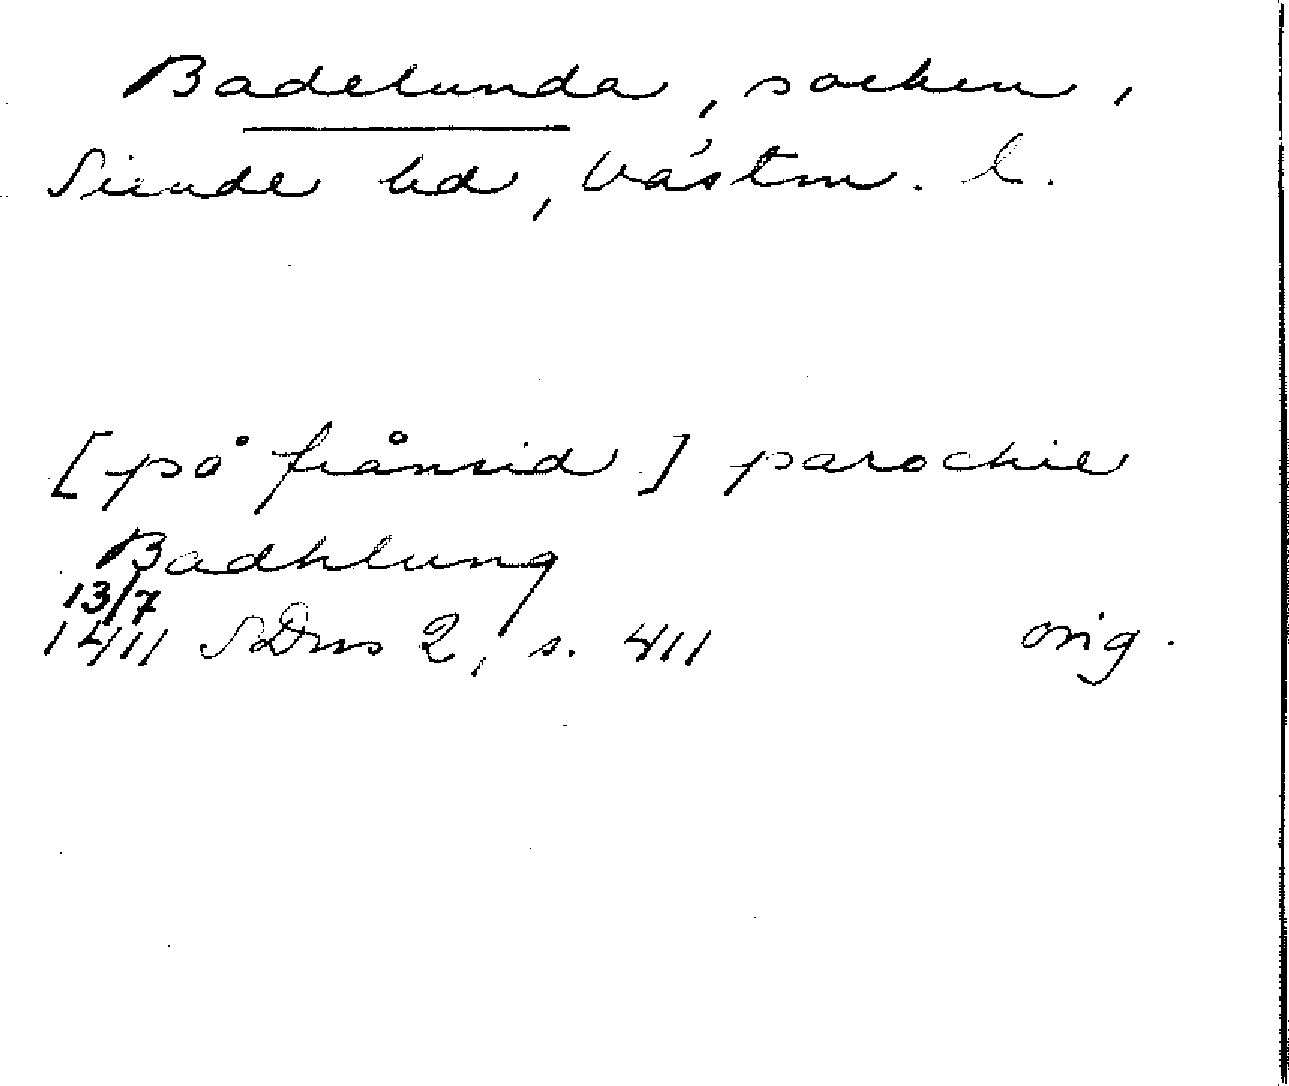 Badelunda, socken,
Siende hd, Västm. l.
[på frånsid] parochie
Badhlung
13/7
1411 SDns 2, s. 411 orig.